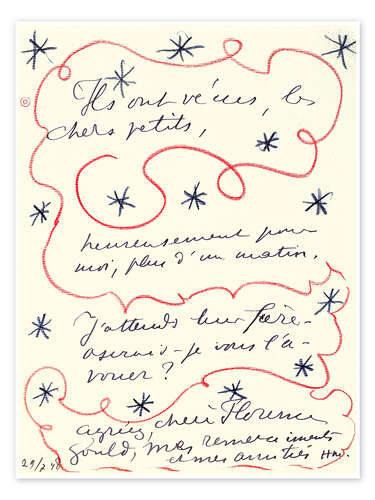 Ils ont vécus, les
chers petits,
heureusement pour
moi, plus d'un matin.
J'attends leur frère -
oserais-je vous l'a-
vouer ?
agréez, chère Florence
Gould, mes remerciements
et mes amitiés HM.
29/2 48